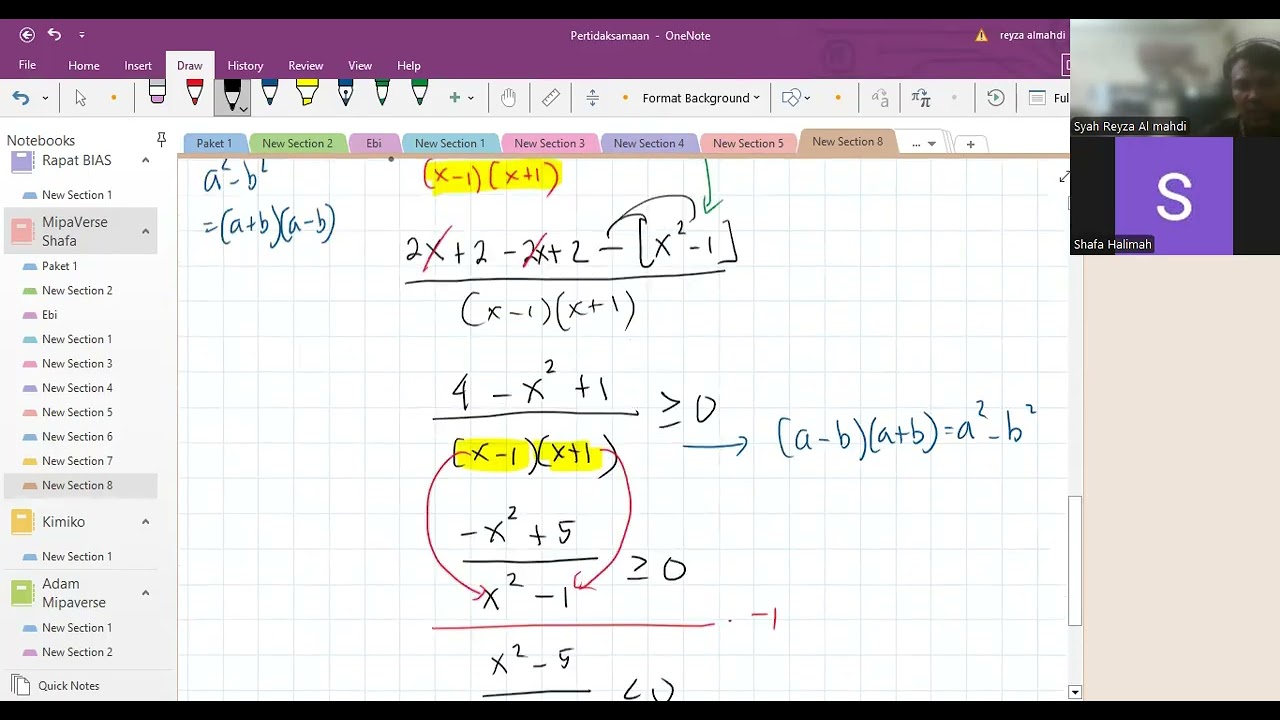 Pertidaksamaan - OneNote
reyza almahdi
File Home Insert Draw History Review View Help
Format Background
Ful
Notebooks
Paket 1 New Section 2 Ebi New Section 1 New Section 3 New Section 4 New Section 5 New Section 8 ...
Rapat BIAS
New Section 1
MipaVerse
Shafa
Paket 1
New Section 2
Ebi
New Section 1
New Section 3
New Section 4
New Section 5
New Section 6
New Section 7
New Section 8
Kimiko
New Section 1
Adam
Mipaverse
New Section 1
New Section 2
Quick Notes
a² - b²
= (a+b)(a-b)
(x-1)(x+1)
2x + 2 - 2x + 2 - [x² - 1]
(x-1)(x+1)
4 - x² + 1
≥ 0
(x-1)(x+1)
(a-b)(a+b) = a² - b²
-x² + 5
≥ 0
x² - 1
. -1
x² - 5
Syah Reyza Al mahdi
S
Shafa Halimah